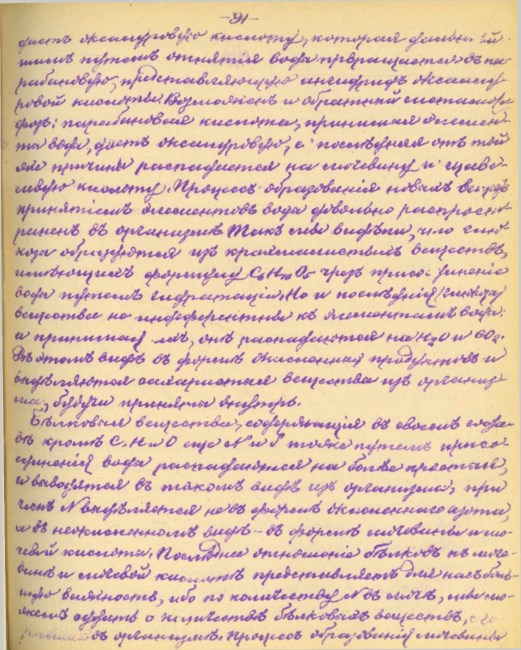 -91-
даетъ оксалуровую кислоту, которая
шимъ путемъ отнятія воды превращается въ па-
рабановую, представляющую ангидридъ оксалу-
ровой кислоты. Возможенъ и обратный
парабановая кислота, принимая
та воды, даетъ оксалуровую, а послѣдняя отъ той
же причины распадается на мочевину и щаве-
левую кислоту. Процессъ образованія новыхъ веществъ
принятіемъ элементовъ воды довольно распрост-
раненъ въ организмѣ. Такъ мы видѣли, что глю-
коза образуется изъ крахмалистыхъ веществъ,
имѣющихъ формулу C6H10O5 чрезъ присоединеніе
воды путемъ гидратаціи. Но и послѣднія
вещества не индиферентны къ элементамъ воды
и принимая ихъ, онѣ распадаются на H2O и CO2.
Въ этомъ видѣ въ формѣ окисленныхъ продуктовъ и
выдѣляются сахаристыя вещества изъ организ-
ма, будучи приняты внутрь.
Бѣлковыя вещества, содержащія въ своемъ соста-
вѣ кромѣ C, H и O еще N и S тоже путемъ присо-
единенія воды распадаются на болѣе простыя,
и выводятся въ такомъ видѣ изъ организма, при
чемъ N выдѣляется не въ формѣ окисленнаго азота,
а въ неокисленномъ видѣ - въ формѣ мочевины и мо-
чевой кислоты. Послѣднее отношеніе бѣлковъ къ моче-
винѣ и мочевой кислотѣ представляетъ для насъ боль-
шую важность, ибо по количеству N въ мочѣ, мы мо-
жемъ судить о количествѣ бѣлковыхъ веществъ,
въ организмѣ. Процессъ образованія мочевины